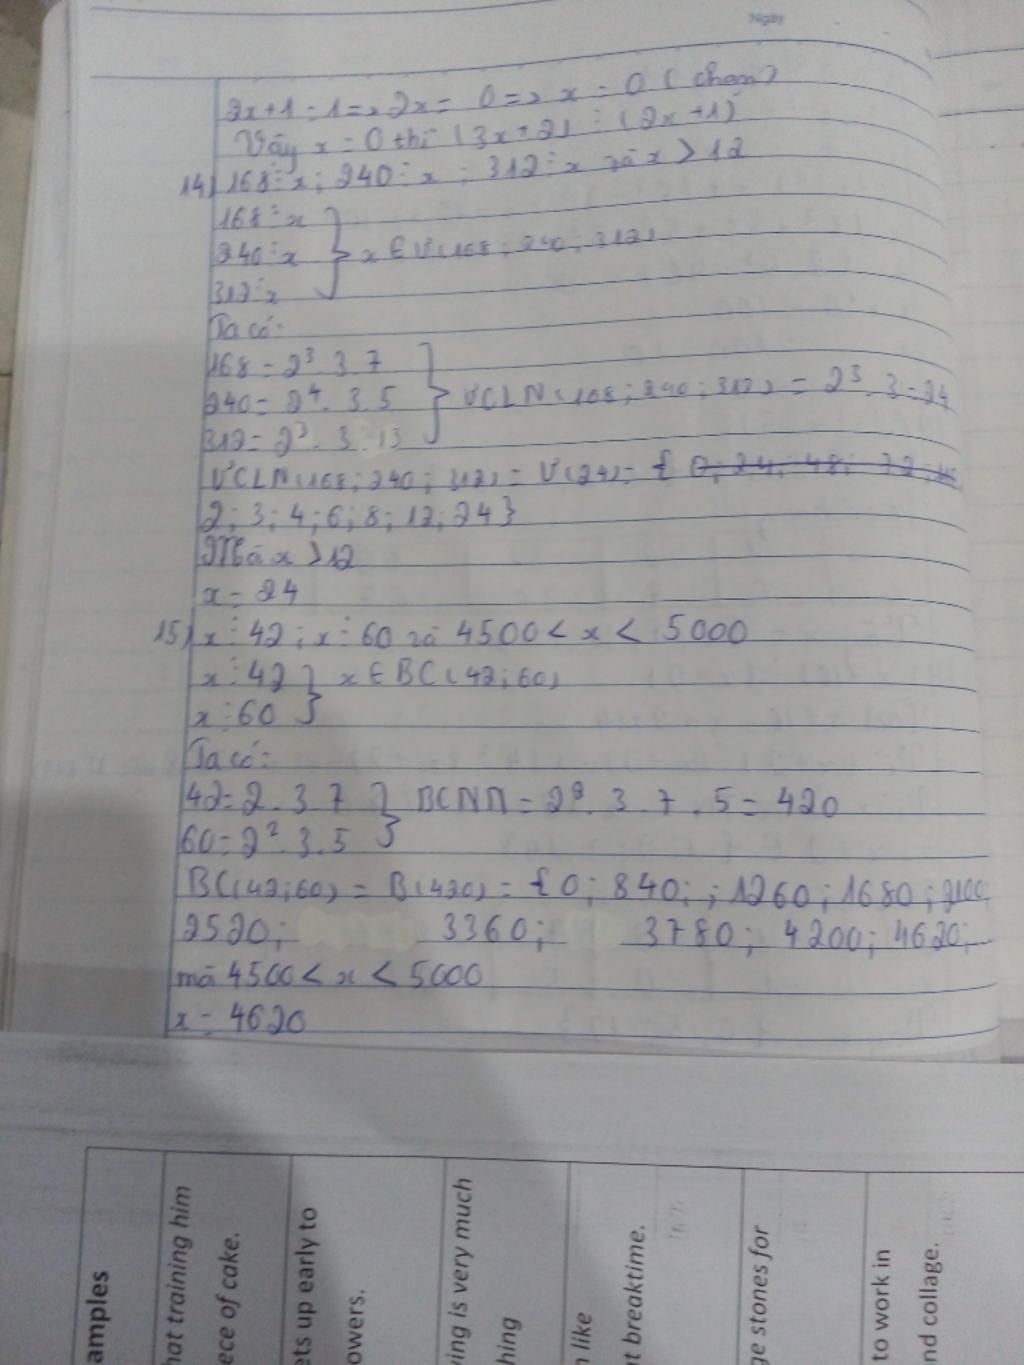 Ngày
2x+1=1=>2x=0=>x=0(chọn)
Vậy x=0 thì (3x+2)⋮(2x+1)
14) 168⋮x; 240⋮x; 312⋮x và x>12
168⋮x
240⋮x } x∈Ư(168; 240; 312)
312⋮x
Ta có:
168=2³.3.7
240=2⁴.3.5 } ƯCLN(168; 240; 312)=2³.3=24
312=2³.3.13
ƯCLN(168; 240; 312)=Ư(24)={0; 24; 48; 72;
2; 3; 4; 6; 8; 12; 24}
Mà x>12
x=24
15) x⋮42; x⋮60 và 4500<x<5000
x⋮42 } x∈BC(42; 60)
x⋮60
Ta có:
42=2.3.7 } BCNN=2².3.7.5=420
60=2².3.5
BC(42; 60)=B(420)={0; 840; ; 1260; 1680; 2100
2520; 3360; 3780; 4200; 4620;
mà 4500<x<5000
x=4620
amples
hat training him
ece of cake.
ets up early to
owers.
ing is very much
hing
n like
t breaktime.
ge stones for
to work in
nd collage.